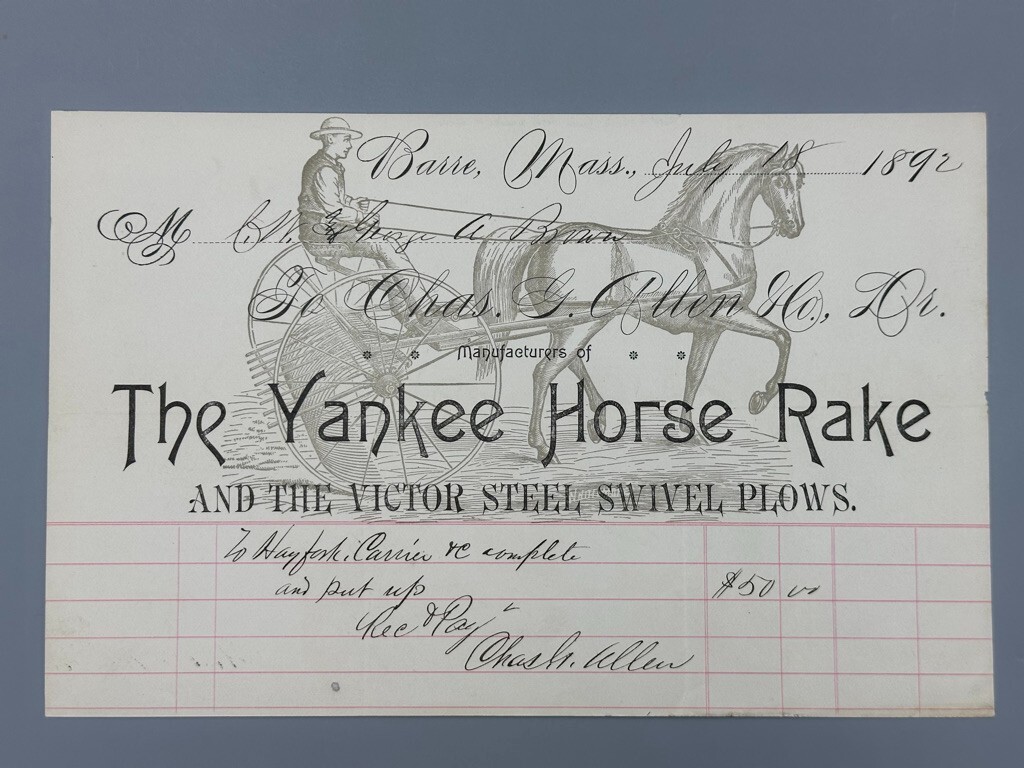 Barre, Mass., July 18 1892
M C.W. & George A Brown
To Chas. G. Allen & Co., Dr.
Manufacturers of
The Yankee Horse Rake
AND THE VICTOR STEEL SWIVEL PLOWS.
To Hay fork, Carrier &c complete
and put up $50 00
Rec'd Pay't
Chas G. Allen